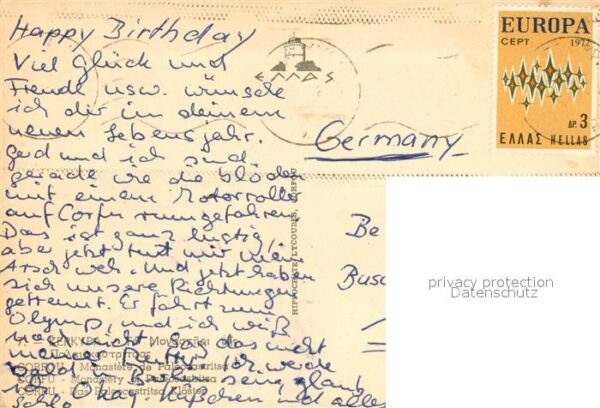 Happy Birthday
Viel Glück und
Freude usw. wünsche
ich dir in deinem
neuen Lebensjahr.
Gerd und ich sind
gerade wie die blöden
mit einem Motorroller
auf Corfu rumgefahren
Das ist ganz lustig,
aber jetzt tut mir mein
Arsch weh. Und jetzt haben
sich unsere Richtungen
getrennt. Er fährt zum
Olymp, und ich weiß
noch nicht
ich werde
bald in Berlin sein, glaub
ich. Okay. und alles
ΕΛΛΑΣ
EUROPA
CEPT 1972
ΔΡ. 3
ΕΛΛΑΣ HELLAS
Germany
HIPPOCRATE LYCOUDIS, CORFOU
Be
Bus
privacy protection
Datenschutz
ΚΕΡΚΥΡΑ - Τὸ Μοναστήρι τῆς
Παλαιοκαστρίτσας
CORFOU - Monastère de Paleocastritsa
CORFU - Monastery of Paleocastritsa
CORFU - Das Paleocastritsa Kloster